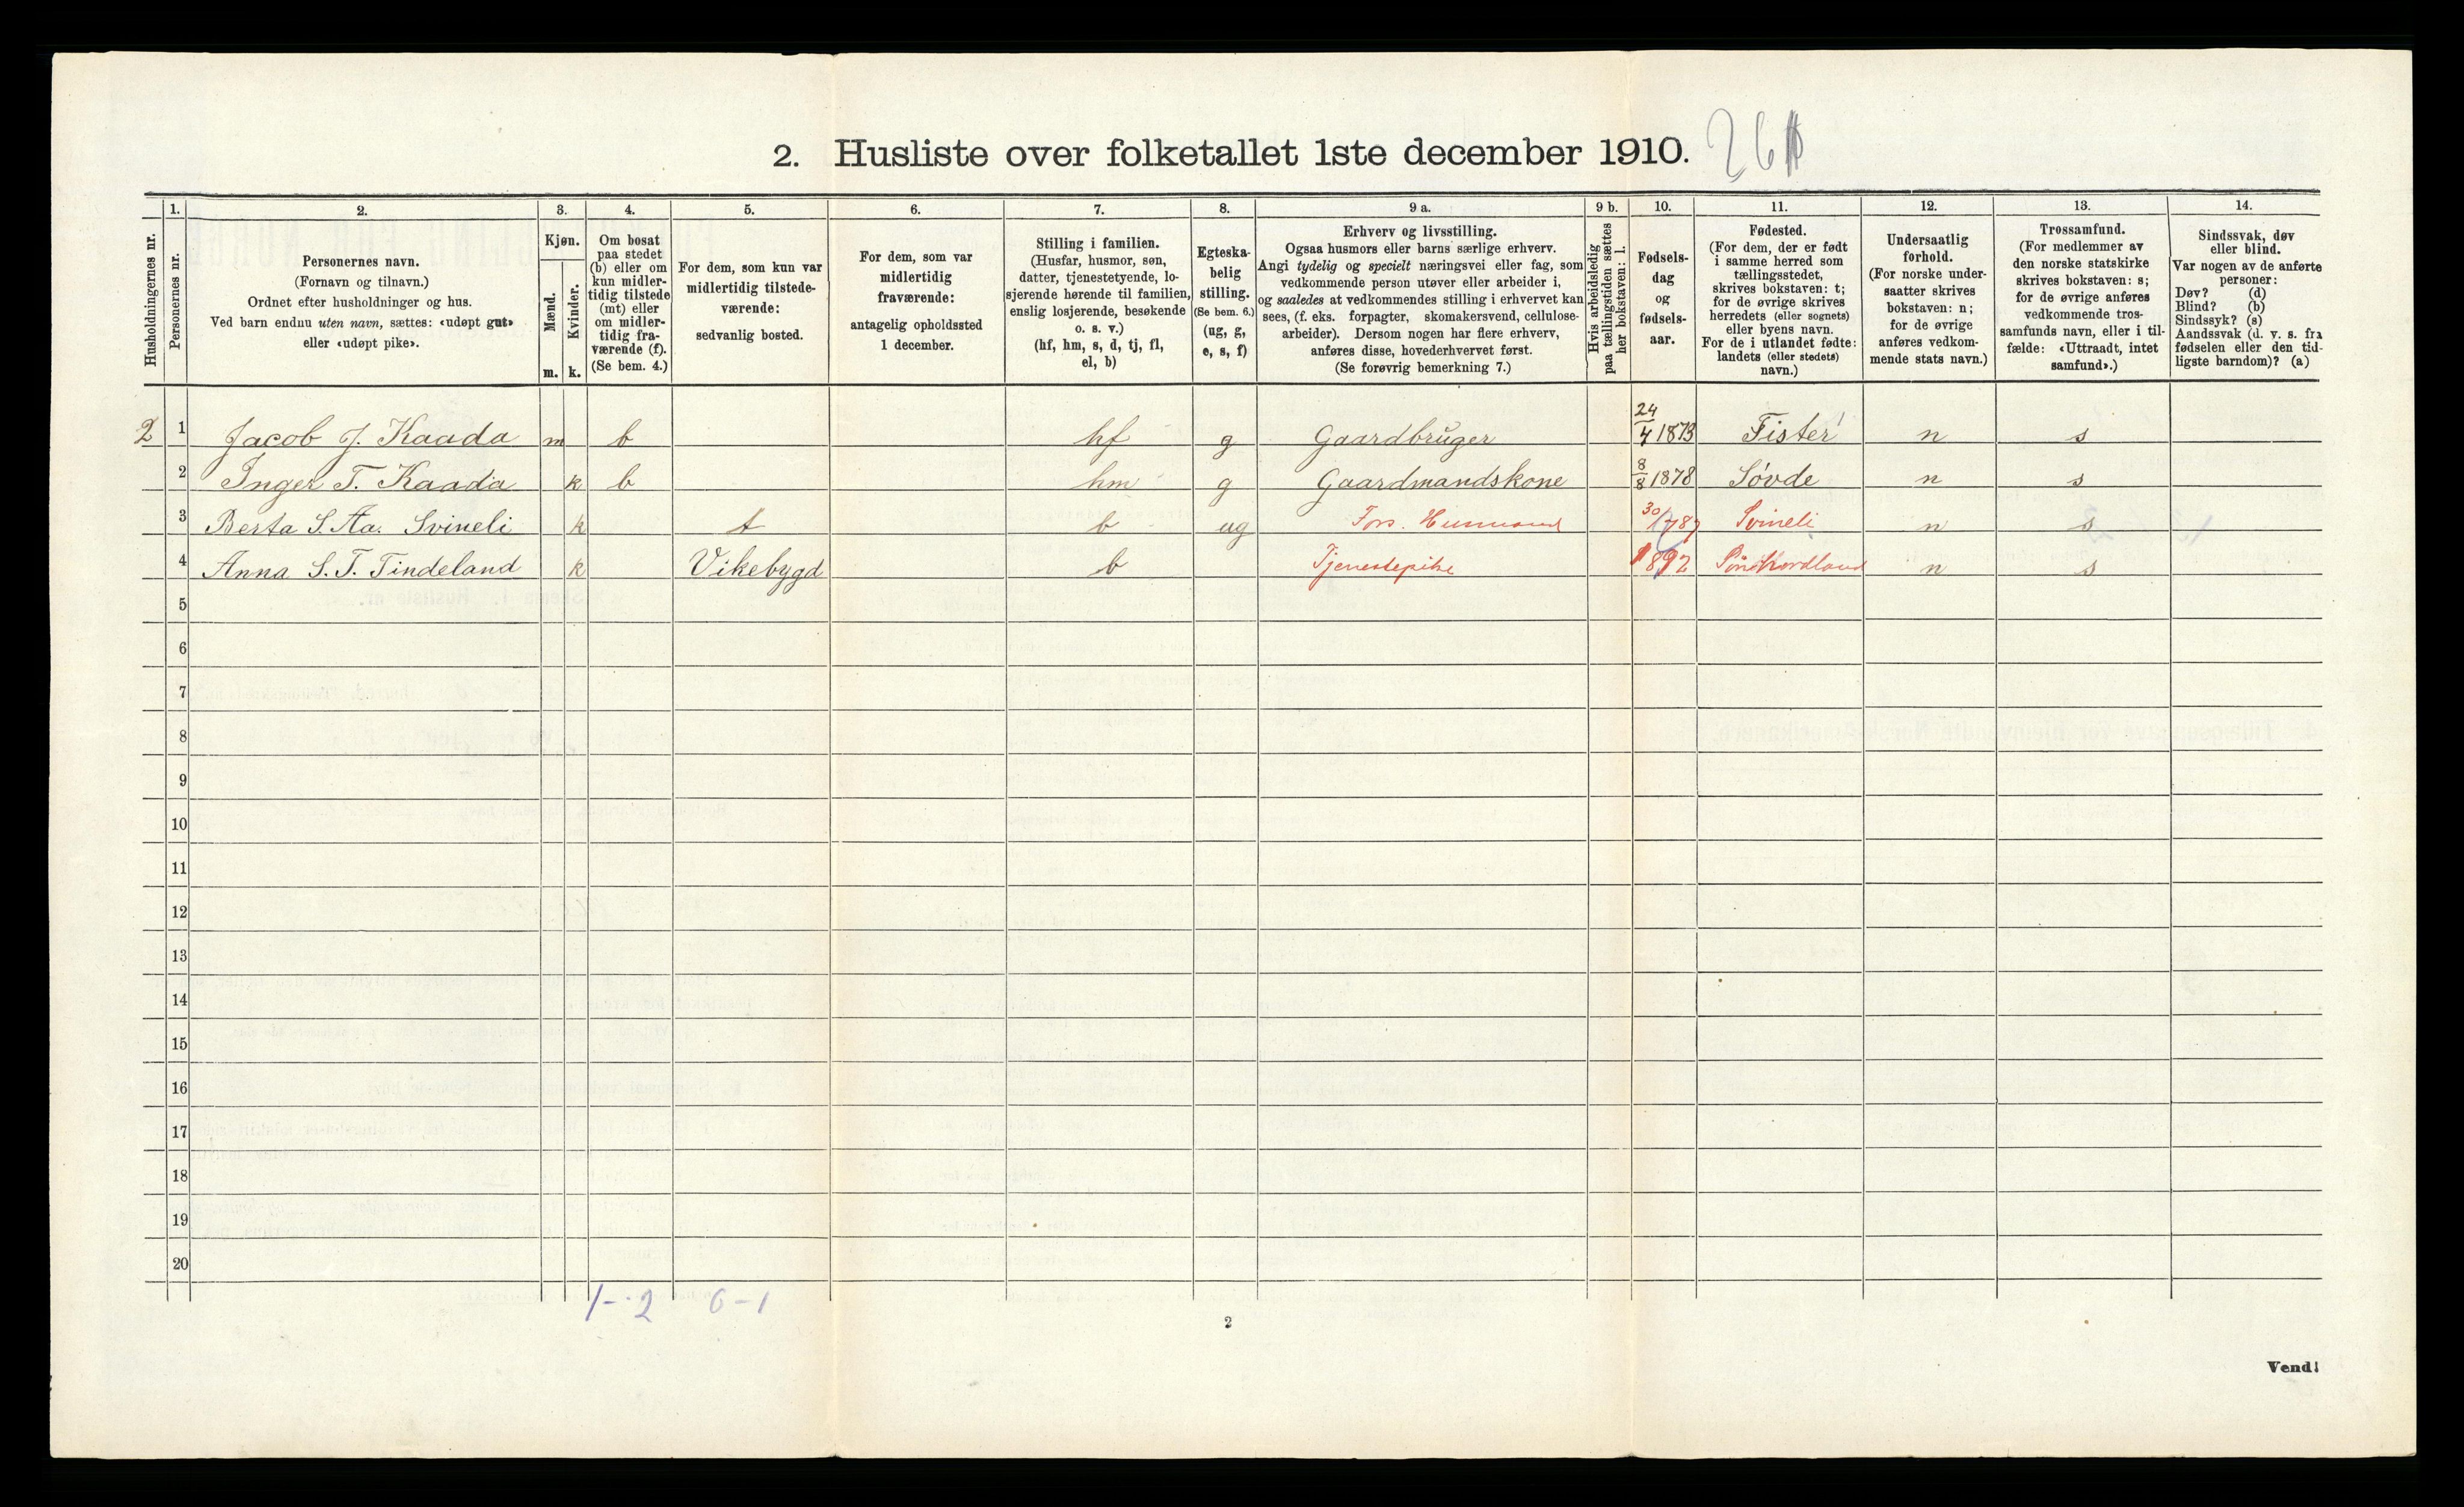 2. Husliste over folketallet 1ste december 1910. 26
Husholdningernes nr.
1. Personernes nr.
2. Personernes navn.
(Fornavn og tilnavn.)
Ordnet efter husholdninger og hus.
Ved barn endnu uten navn, sættes: «udøpt gut»
eller «udøpt pike».
3. Kjøn.
Mænd. m.
Kvinder. k.
4. Om bosat
paa stedet
(b) eller om
kun midler-
tidig tilstede
(mt) eller
om midler-
tidig fra-
værende (f).
(Se bem. 4.)
5. For dem, som kun var
midlertidig tilstede-
værende:
sedvanlig bosted.
6. For dem, som var
midlertidig
fraværende:
antagelig opholdssted
1 december.
7. Stilling i familien.
(Husfar, husmor, søn,
datter, tjenestetyende, lo-
sjerende hørende til familien,
enslig losjerende, besøkende
o. s. v.)
(hf, hm, s, d, tj, fl,
el, b)
8. Egteska-
belig
stilling.
(Se bem. 6.)
(ug, g,
e, s, f)
9 a. Erhverv og livsstilling.
Ogsaa husmors eller barns særlige erhverv.
Angi tydelig og specielt næringsvei eller fag, som
vedkommende person utøver eller arbeider i,
og saaledes at vedkommendes stilling i erhvervet kan
sees, (f. eks. forpagter, skomakersvend, cellulose-
arbeider). Dersom nogen har flere erhverv,
anføres disse, hovederhvervet først.
(Se forøvrig bemerkning 7.)
9 b. Hvis arbeidsledig
paa tællingstiden sættes
her bokstaven: l.
10. Fødsels-
dag
og
fødsels-
aar.
11. Fødested.
(For dem, der er født
i samme herred som
tællingsstedet,
skrives bokstaven: t;
for de øvrige skrives
herredets (eller sognets)
eller byens navn.
For de i utlandet fødte:
landets (eller stedets)
navn.)
12. Undersaatlig
forhold.
(For norske under-
saatter skrives
bokstaven: n;
for de øvrige
anføres vedkom-
mende stats navn.)
13. Trossamfund.
(For medlemmer av
den norske statskirke
skrives bokstaven: s;
for de øvrige anføres
vedkommende tros-
samfunds navn, eller i til-
fælde: «Uttraadt, intet
samfund».)
14. Sindssvak, døv
eller blind.
Var nogen av de anførte
personer:
Døv? (d)
Blind? (b)
Sindssyk? (s)
Aandssvak (d. v. s. fra
fødselen eller den tid-
ligste barndom)? (a)
2 1 Jacob J. Kaada m b hf g Gaardbruger 24/4 1873 Fister n s
2 Inger T. Kaada k b hm g Gaardmandskone 8/8 1878 Søvde n s
3 Berta S. Aa. Svineli k t b ug Fors. Svineli n s
4 Anna S. T. Tindeland k Vikebygd b Tjenestepike 1892 n s
5
6
7
8
9
10
11
12
13
14
15
16
17
18
19
20
1 - 2 0 - 1
2
Vend!